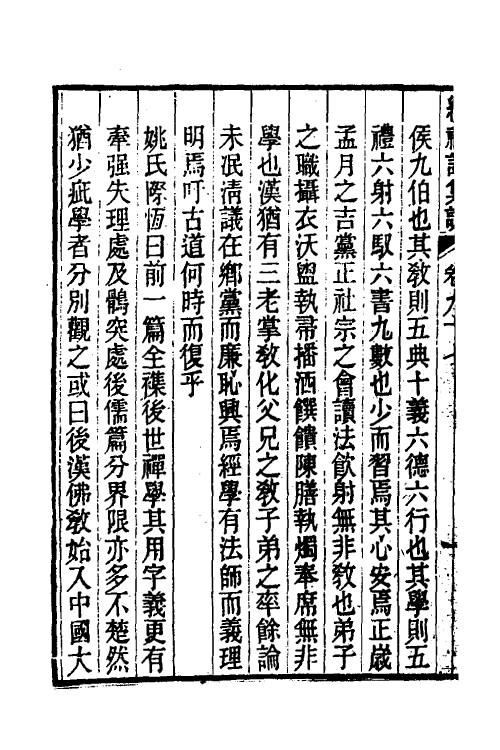 侯九伯也其敎則五典十義六德六行也其學則五
禮六射六馭六書九數也少而習焉其心安焉正歲
孟月之吉黨正社宗之會讀法飮射無非敎也弟子
之職攝衣沃盥執帚播洒饌饋陳膳執燭奉席無非
學也漢猶有三老掌敎化父兄之敎子弟之率餘論
未泯淸議在鄕黨而廉恥興焉經學有法師而義理
明焉吁古道何時而復乎
姚氏際恆曰前一篇全襍後世禪學其用字義更有
牽强失理處及鶻突處後儒篇分界限亦多不楚然
猶少疵學者分別觀之或曰後漢佛敎始入中國大